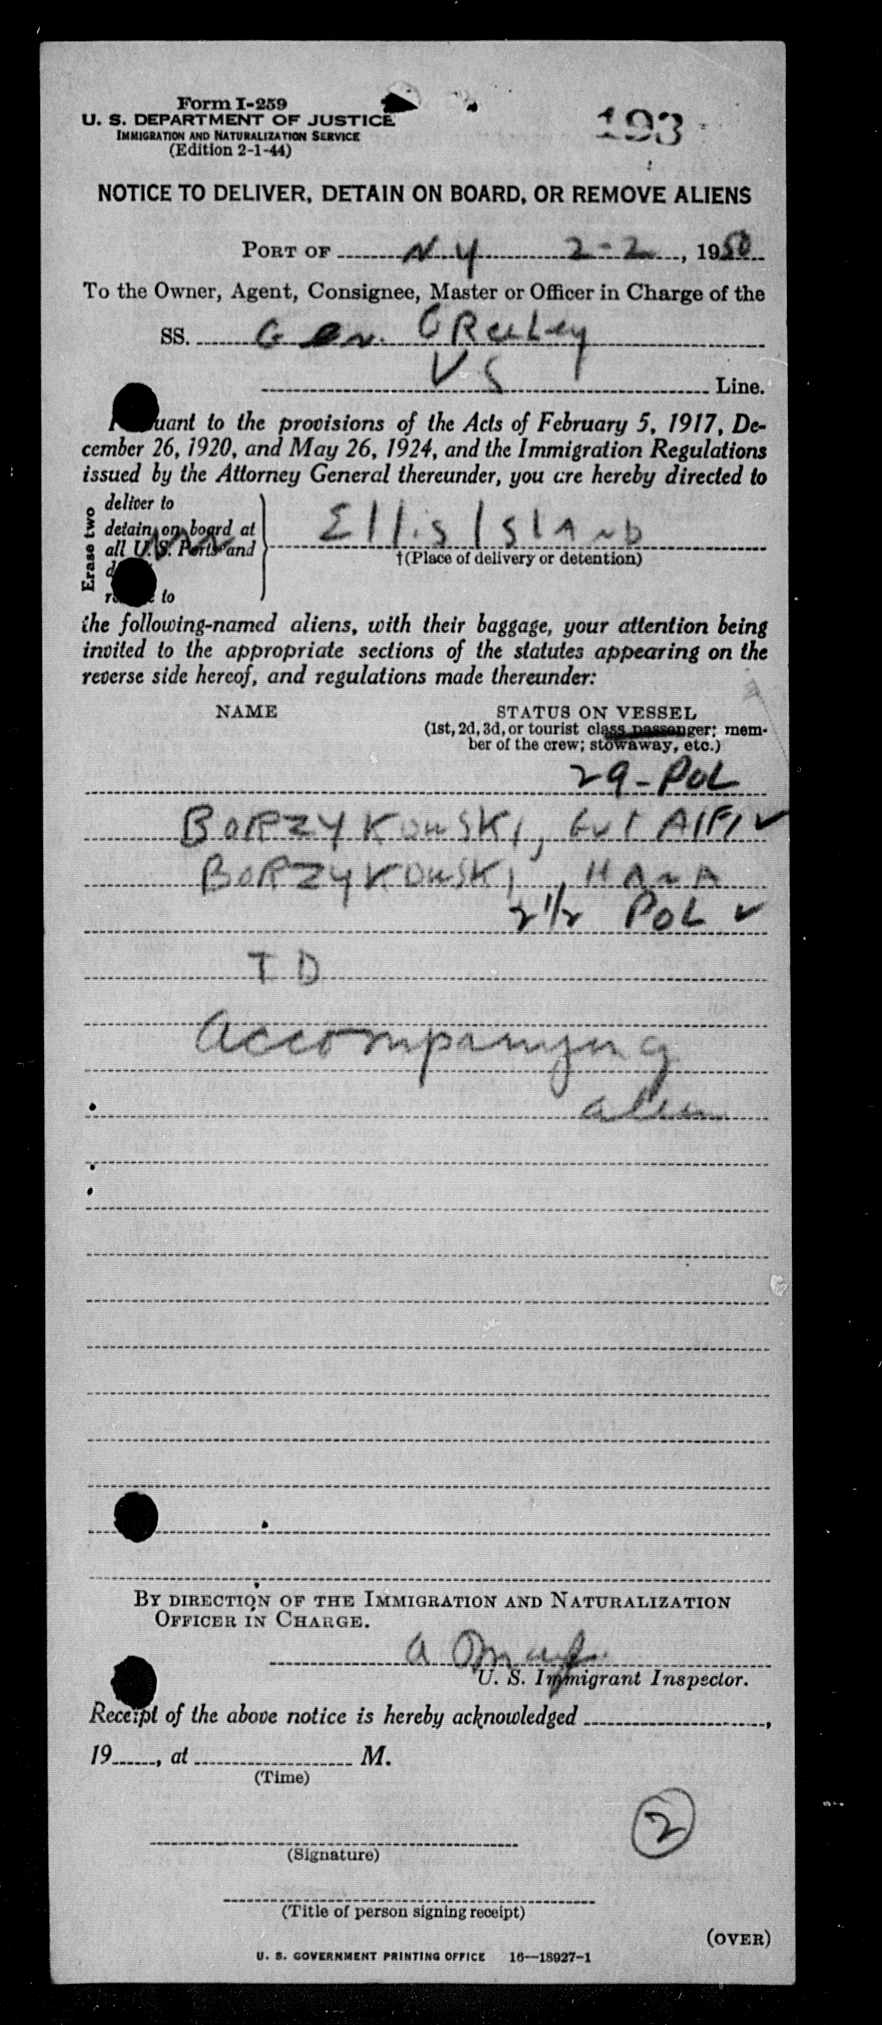 Form I-259
U. S. DEPARTMENT OF JUSTICE
IMMIGRATION AND NATURALIZATION SERVICE
(Edition 2-1-44)
193
NOTICE TO DELIVER, DETAIN ON BOARD, OR REMOVE ALIENS
PORT OF N.Y 2-2, 1950
To the Owner, Agent, Consignee, Master or Officer in Charge of the
SS. Gen. GReeley
US Line.
uant to the provisions of the Acts of February 5, 1917, De-
cember 26, 1920, and May 26, 1924, and the Immigration Regulations
issued by the Attorney General thereunder, you are hereby directed to
Erase two
deliver to
detain on board at
all U. S. Ports and
to
Ellis Island
†(Place of delivery or detention)
the following-named aliens, with their baggage, your attention being
invited to the appropriate sections of the statutes appearing on the
reverse side hereof, and regulations made thereunder:
NAME STATUS ON VESSEL
(1st, 2d, 3d, or tourist class passenger; mem-
ber of the crew; stowaway, etc.)
29-POL
BORZYKOWSKI,
BORZYKOWSKI, HANA
2 1/2 POL ✓
T D
Accompanying
alien
BY DIRECTION OF THE IMMIGRATION AND NATURALIZATION
OFFICER IN CHARGE.
U. S. Immigrant Inspector.
Receipt of the above notice is hereby acknowledged ,
19 , at M.
(Time)
2
(Signature)
(Title of person signing receipt)
(OVER)
U. S. GOVERNMENT PRINTING OFFICE 16—18927-1